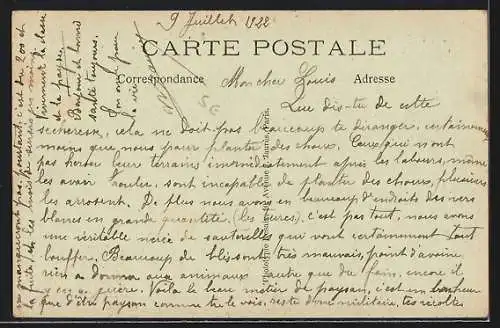 9 Juillet 1922
CARTE POSTALE
Correspondance
Adresse
Mon cher Louis
Que dis-tu de cette
secheresse, cela ne doit pas beaucoup te déranger, certainement
moins que nous pour planter des choux. Ceux qui n'ont
pas herser leur terrains immédiatement après les labours, même
les avoir rouler, sont incapables de planter des choux, plusieurs
les arrosent. De plus nous avons en beaucoup d'endroits des vers
blancs en grande quantité, (les tures), c'est pas tout, nous avons
une véritable nuée de sauterelles qui vont certainement tout
bouffer. Beaucoup de blés sont très mauvais, point d'avoine,
rien a donner aux animaux autre que du foin, encore il
y en a guère. Voila le beau métier de paysan, c'est un bonheur
que d'être paysan comme tu le vois, reste donc militaire, tes récoltes
ne manqueront pas. Pourtant c'est du 200 et
la suite,
fermement la classe
et la paysan.
Bonjour et bonne
santé toujours.
Ton ami pour
la vie
SG